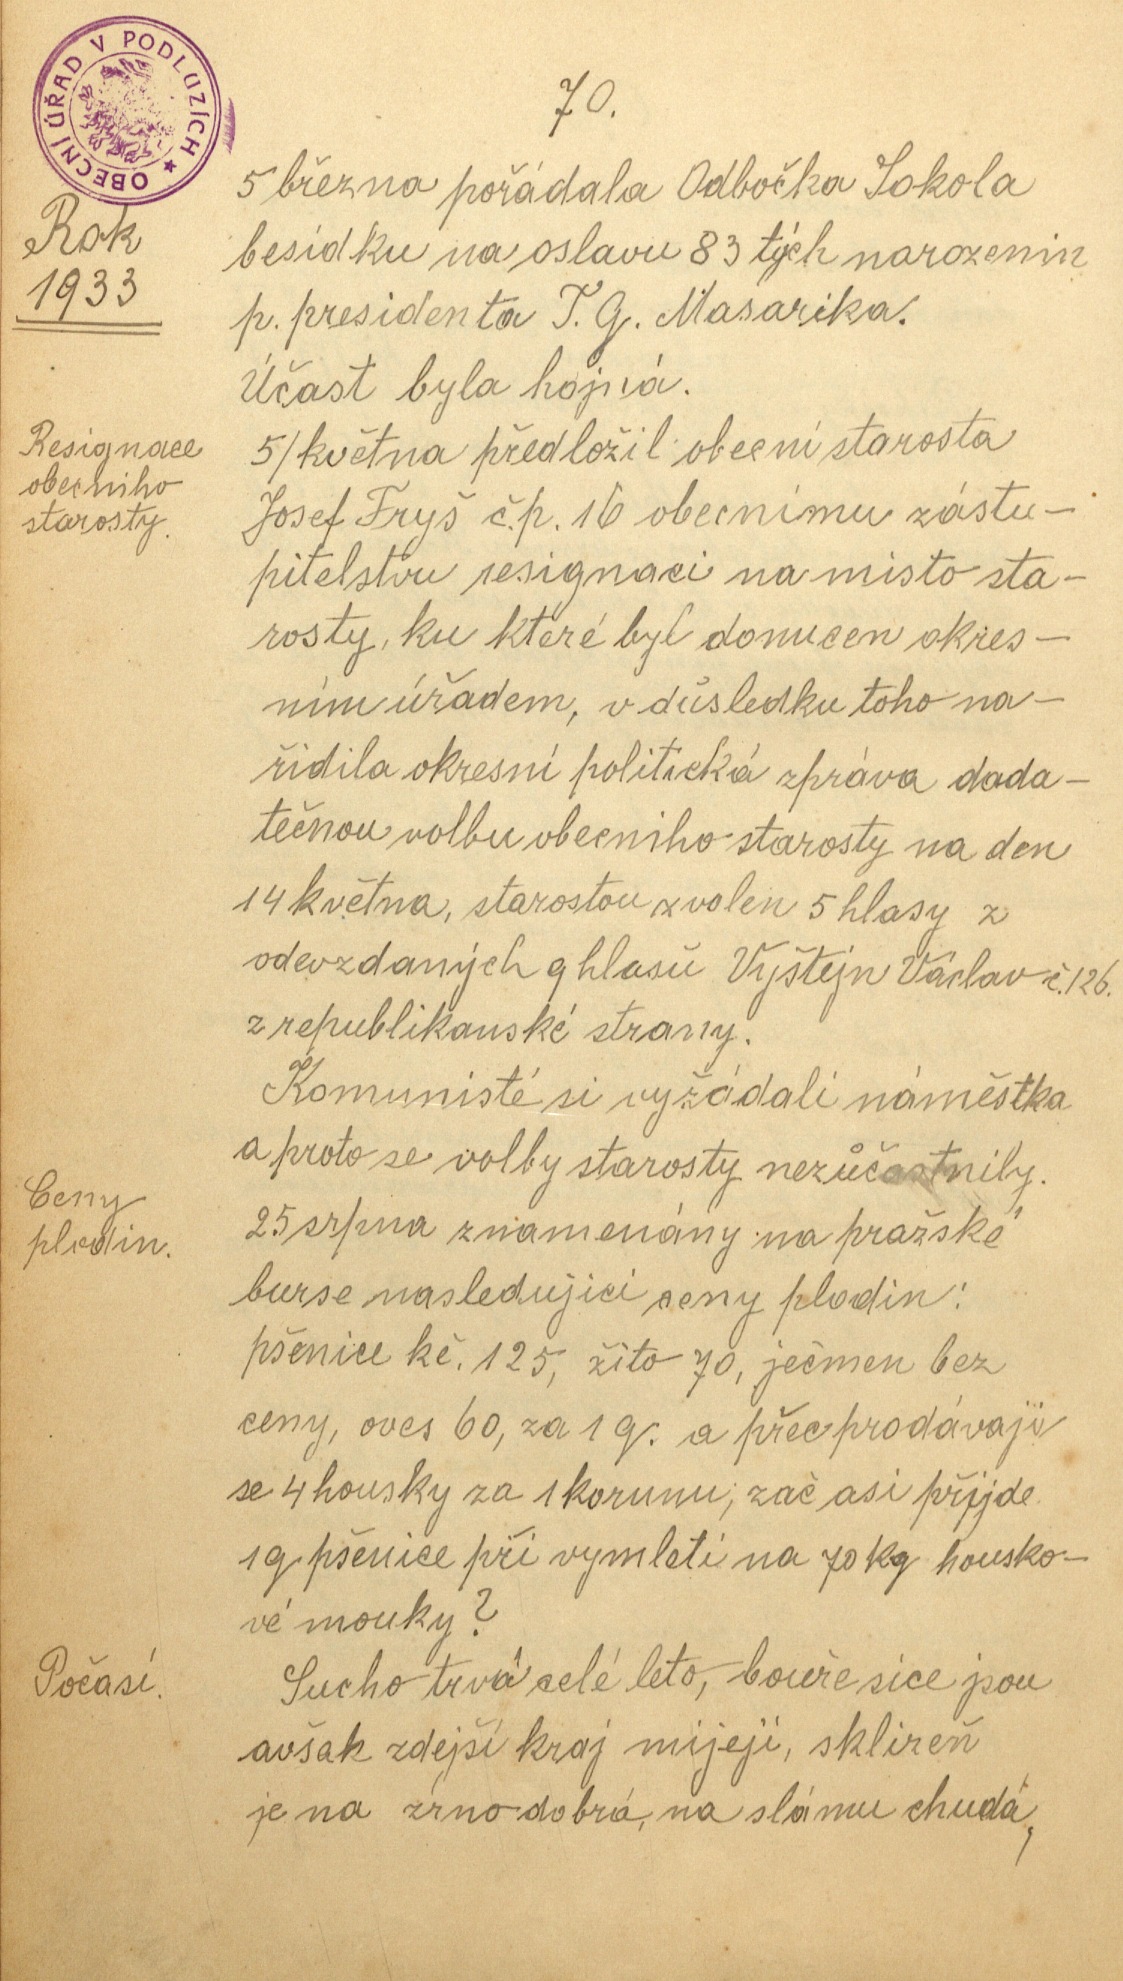 OBECNÍ ÚŘAD V PODLUZÍCH
70.
Rok
1933
5 března pořádala Odbočka Sokola
besídku na oslavu 83 tých narozenin
p. presidenta T. G. Masarika.
Účast byla hojná.
Resignace
obecniho
starosty.
5/ května předložil obecní starosta
Josef Fryš č.p. 16 obecnímu zástu-
pitelstvu resignaci na misto sta-
rosty, ku které byl donucen okres-
ním úřadem, v důsledku toho na-
řídila okresní politická zpráva dada-
tečnou volbu obecniho starosty na den
14 května, starostou zvolen 5 hlasy z
odevzdaných 9 hlasů Vyštejn Václav č. 126.
z republikanské strany.
Komunisté si vyžádali náměstka
a proto se volby starosty nezůčastnily.
Ceny
plodin.
25 srpna znamenány na pražské
burse nasledujici ceny plodin:
pšenice kč. 125, žito 70, ječmen bez
ceny, oves 60, za 1 q. a přec prodávají
se 4 housky za 1 korunu, zač asi přijde
1 q pšenice při vymletí na 70 kg housko-
vé mouky?
Počasí.
Sucho trvá celé leto, bouře sice jsou
avšak zdejší kraj míjejí, sklizeň
je na zrno dobrá, na slámu chudá,